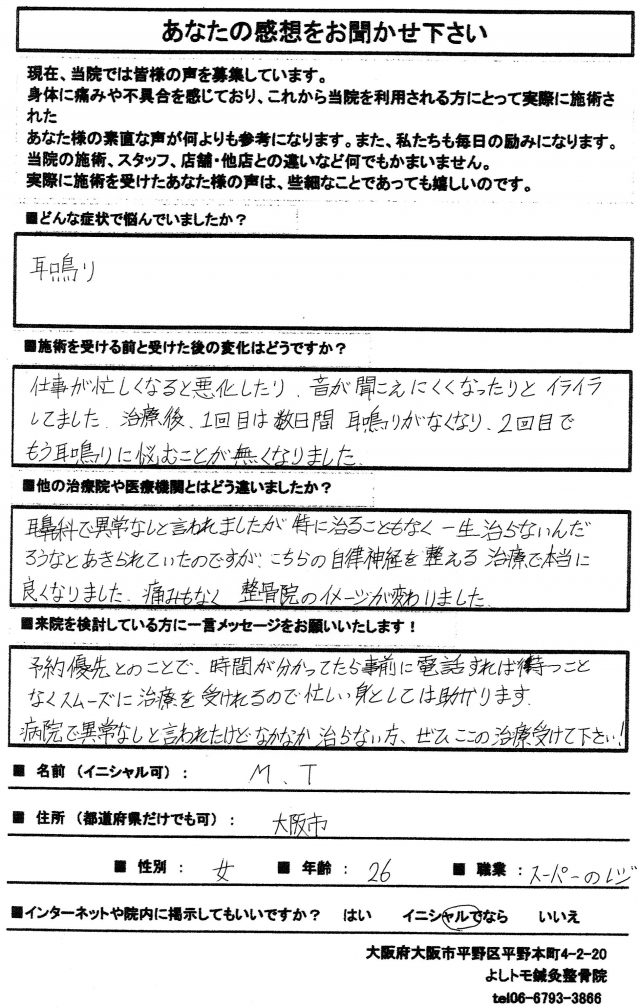 あなたの感想をお聞かせ下さい
現在、当院では皆様の声を募集しています。
身体に痛みや不具合を感じており、これから当院を利用される方にとって実際に施術さ
れた
あなた様の素直な声が何よりも参考になります。また、私たちも毎日の励みになります。
当院の施術、スタッフ、店舗・他店との違いなど何でもかまいません。
実際に施術を受けたあなた様の声は、些細なことであっても嬉しいのです。
■どんな症状で悩んでいましたか？
耳鳴り
■施術を受ける前と受けた後の変化はどうですか？
仕事が忙しくなると悪化したり、音が聞こえにくくなったりと イライラ
してました。治療後、1回目は数日間 耳鳴りがなくなり、2回目で
もう耳鳴りに悩むことが無くなりました。
■他の治療院や医療機関とはどう違いましたか？
耳鼻科で異常なしと言われましたが 特に治ることもなく 一生治らないんだ
ろうなとあきらめていたのですが、こちらの自律神経を整える 治療で本当に
良くなりました。痛みもなく 整骨院のイメージが変わりました。
■来院を検討している方に一言メッセージをお願いいたします！
予約優先とのことで、時間が分かってたら事前に電話すれば待つこと
なくスムーズに治療を受けれるので忙しい身としては助かります。
病院で異常なしと言われたけどなかなか治らない方、ぜひここの治療受けて下さい！
■ 名前（イニシャル可）： M.T
■ 住所（都道府県だけでも可）： 大阪市
■ 性別： 女 ■ 年齢： 26 ■ 職業：スーパーのレジ
■インターネットや院内に掲示してもいいですか？ はい イニシャルでなら いいえ
大阪府大阪市平野区平野本町4-2-20
よしトモ鍼灸整骨院
tel06-6793-3866